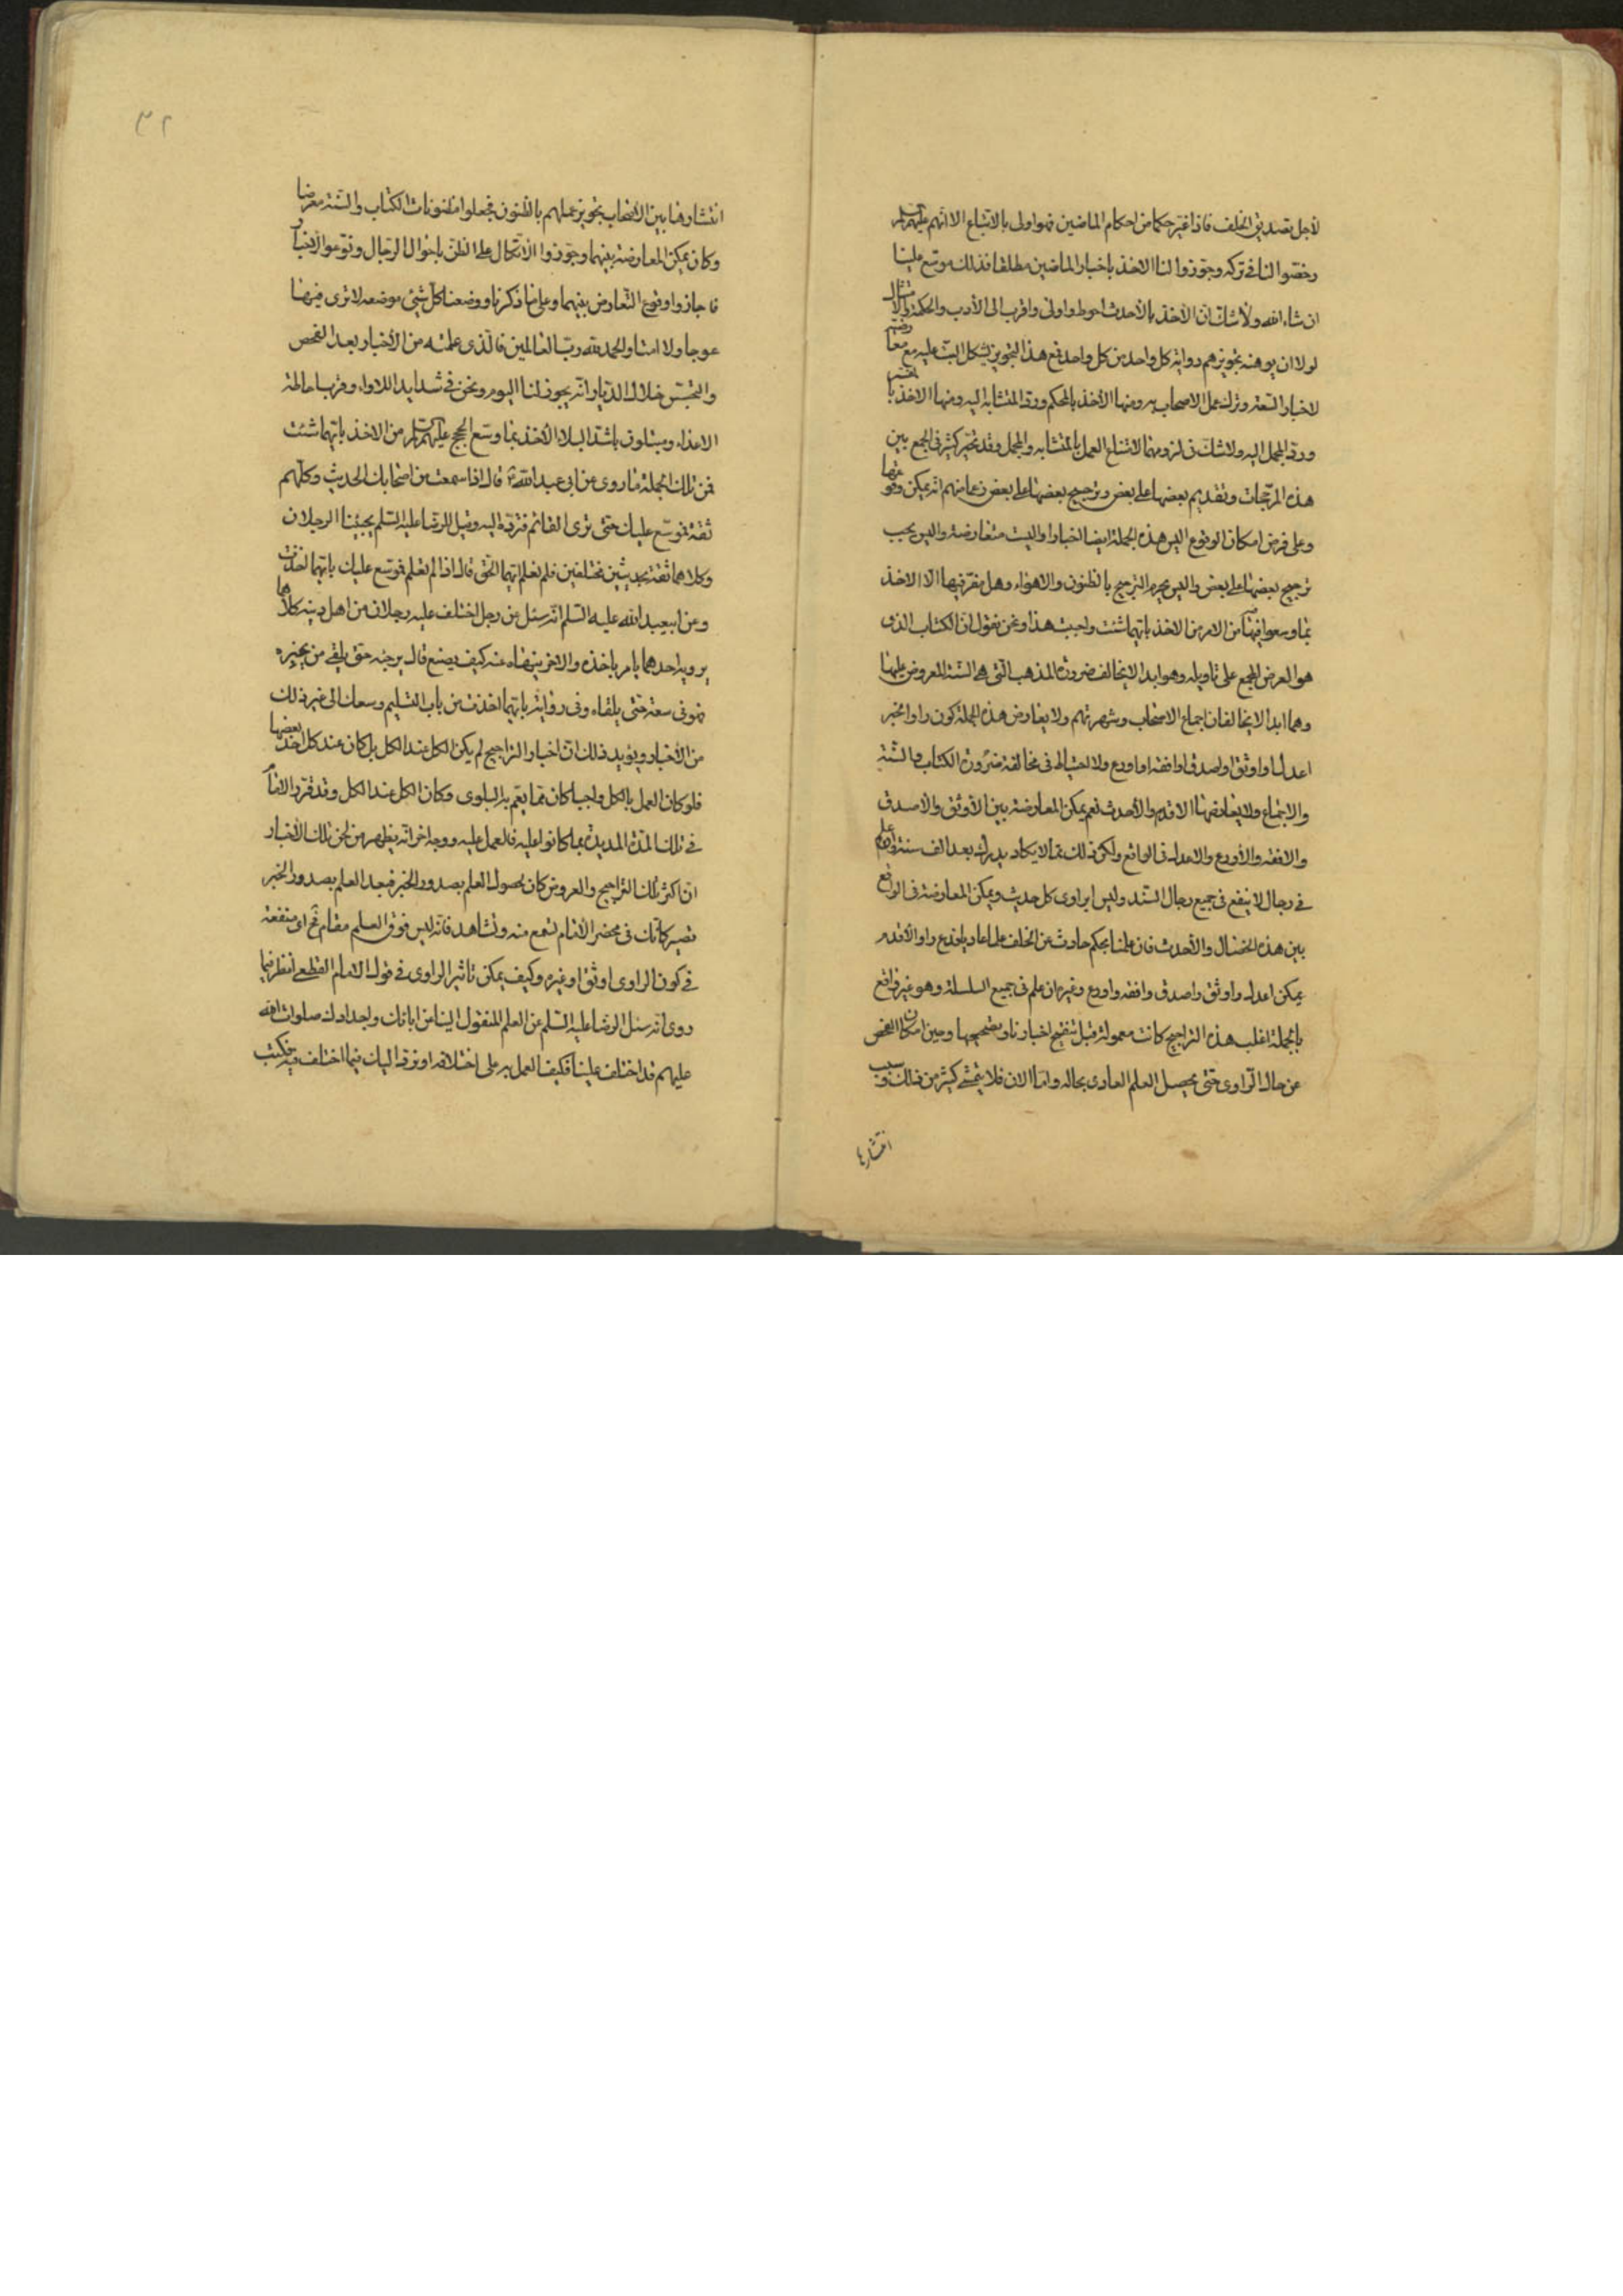 لاجل تصديق الخلف فاذا غير حكما من احكام الماضين فهو اولى بالاتباع الا انهم عليهم السلم
رخصوا لنا في تركه وجوزوا لنا الاخذ باخبار الماضين مطلقا فذلك موسع علينا
ان شاء الله ولا شك ان الاخذ بالاحدث احوط واولى واقرب الى الادب والحكمة والامتثال
لولا ان يوهنه تجويزهم رواية كل واحد من كل واحد فمع هذا التجويز يشكل البت عليه مع معارضته
لاخبار السعة وترك عمل الاصحاب به ومنها الاخذ بالمحكم ورد المتشابه اليه ومنها الاخذ بالمفسر
ورد المجمل اليه ولا شك في لزومهما لامتناع العمل بالمتشابه والمجمل وقد تحير كثير في الجمع بين
هذه المرجحات وتقديم بعضها على بعض وترجيح بعضها على بعض زعما منهم انه يمكن وقوعها
وعلى فرض امكان الوقوع اليس هذه الجملة ايضا اخبارا واليست متعارضة واليس يجب
ترجيح بعضها على بعض واليس يحرم الترجيح بالظنون والاهواء وهل مفر فيها الا الاخذ
بما وسعوا فيها من الامر من الاخذ بايهما شئت واجبت هذا ونحن نقول ان الكتاب الذي
هو المعرض المجمع على تاويله وهو ابدا لا يخالف ضرورة المذهب التي هي السنة المعروض عليها
وهما ابدا لا يخالفان اجماع الاصحاب وشهرتهم ولا يعارض هذه الجملة كون راوا الخبر
اعدل او اوثق او اصدق او افقه او اورع ولا احتياط في مخالفة ضرورة الكتاب والسنة
والاجماع ولا يعارضها الاقدم والاحدث نعم يمكن المعارضة بين الاوثق والاصدق
والافقه والاورع والاعدل في الواقع ولكن ذلك مما لا يكاد يدرك بعد الف سنة
في رجال لا ينفع في جميع رجال السند وليس لراوى كل حديث ويمكن المعارضة في الواقع
بين هذه الخصال والاحدث فان علمنا بحكم حادث عن الخلف راو الاقدم
يمكن اعدل واوثق واصدق وافقه واورع وغيره ان علم في جميع السلسلة وهو غير واقع
بالجملة اغلب هذه التراجيح كانت معمولة قبل تنقيح اخبارنا وتصحيحها وحين امكان الفحص
عن حال الراوى حتى يحصل العلم العادى بحاله واما الان فلا يتمشى كثير من ذلك وسبب
انتشار
٣٢
انتشارها بين الاصحاب تجويز عملهم بالظنون فجعلوا مظنونات الكتاب والسنة معرضا
وكان يمكن المعارضة بينهما وجوزوا الاتكال على الظن باحوال الرجال ونوعوا الاخبار
فاجازوا وقوع التعارض بينهما وعلى ما ذكرنا ووضعنا كل شئ موضعه لا ترى فيها
عوجا ولا امتا والحمد لله رب العالمين فالذى علمته من الاخبار بعد الفحص
والتجسس خلال الديار انه يجوز لنا اليوم ونحن في شدايد اللاواء وقرب احاطة
الاعداء ومبتلون باشد البلاء الاخذ بما وسع الحجج عليهم السلم من الاخذ بايهما شئت
فمن تلك الجملة ما روى عن ابي عبد الله ع قال اذا سمعت من اصحابك الحديث وكلهم
ثقة فموسع عليك حتى ترى القائم فترده اليه وقيل للرضا عليه السلم يجيئنا الرجلان
وكلاهما ثقة بحديثين مختلفين فلم نعلم ايهما الحق قال اذا لم تعلم فموسع عليك بايهما اخذت
وعن ابيعبد الله عليه السلم انه سئل عن رجل اختلف عليه رجلان من اهل دينه كلاهما
يرويه احدهما يامر باخذه والاخر ينهاه عنه كيف يصنع قال يرجئه حتى يلقى من يخبره
فهو في سعة حتى يلقاه وفي رواية بايهما اخذت من باب التسليم وسعك الى غير ذلك
من الاخبار ويؤيد ذلك ان اخبار التراجيح لم يكن الكل عند الكل بل كان عند كل احد بعضها
فلو كان العمل بالكل واجبا كان مما يعم به البلوى وكان الكل عند الكل وقد قرر الامام
في تلك المدة المديدة بما كانوا عليه فالعمل عليه ووجه اخر انه يظهر من لحن تلك الاخبار
ان اكثر تلك التراجيح والعروض كان لحصول العلم بصدور الخبر فبعد العلم بصدور الخبر
تصير كانك في محضر الامام تسمع منه وتشاهد فانه ليس فوق العلم مقام فح اى منفعة
في كون الراوى اوثق او غيره وكيف يمكن تاثير الراوى في قول الامام القطعى انظر فيما
روى انه سئل الرضا عليه السلم عن العلم المنقول الينا عن ابائك واجدادك صلوات الله
عليهم قد اختلف علينا فكيف العمل به على اختلافه او نرد اليك فيما اختلف فيه فكتب